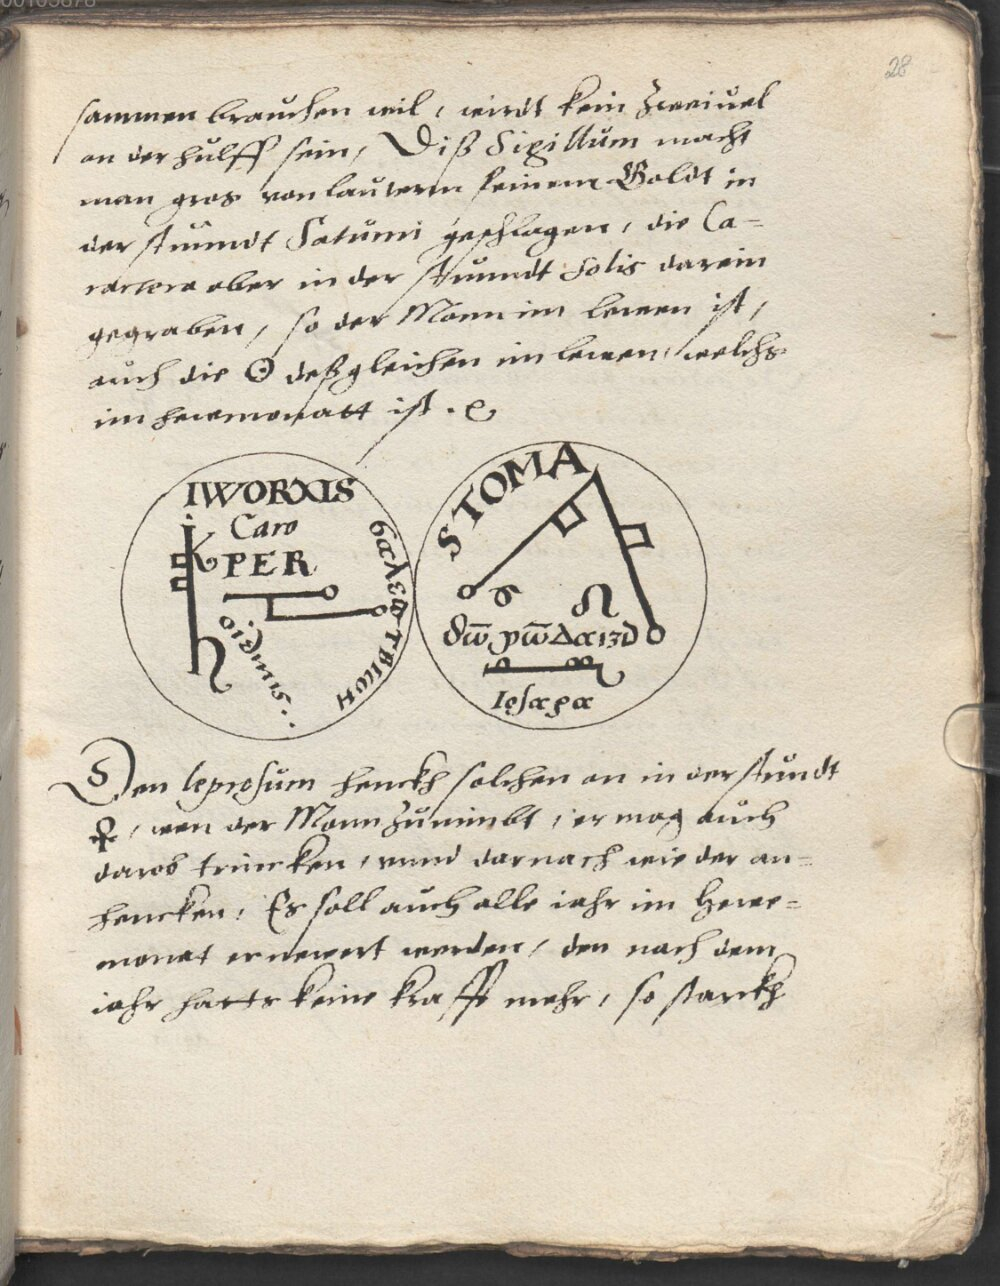 28
sammen brauchen wil, wirdt kein Zweiuel
an der hulff sein, Diß Sigillum macht
man gros von lauterm feinem Goldt in
der stundt Saturni geschlagen, die Ca=
ractera aber in der stundt Solis darein
gegraben, so der Monn im lewen ist,
auch die ☉ deßgleichen im lewen, welchs
im hewmonatt ist.
IWORXIS
Caro
PER
STOMA
♌
Den leprosum henckh solchen an in der stundt
♀, wen der Monn Zunimbt, er mag auch
darob trincken, vnnd darnach wider an=
hencken, Es soll auch alle iahr im Hewe=
monat ernewert werden, den nach dem
iahr hatts keine krafft mehr, so starckh